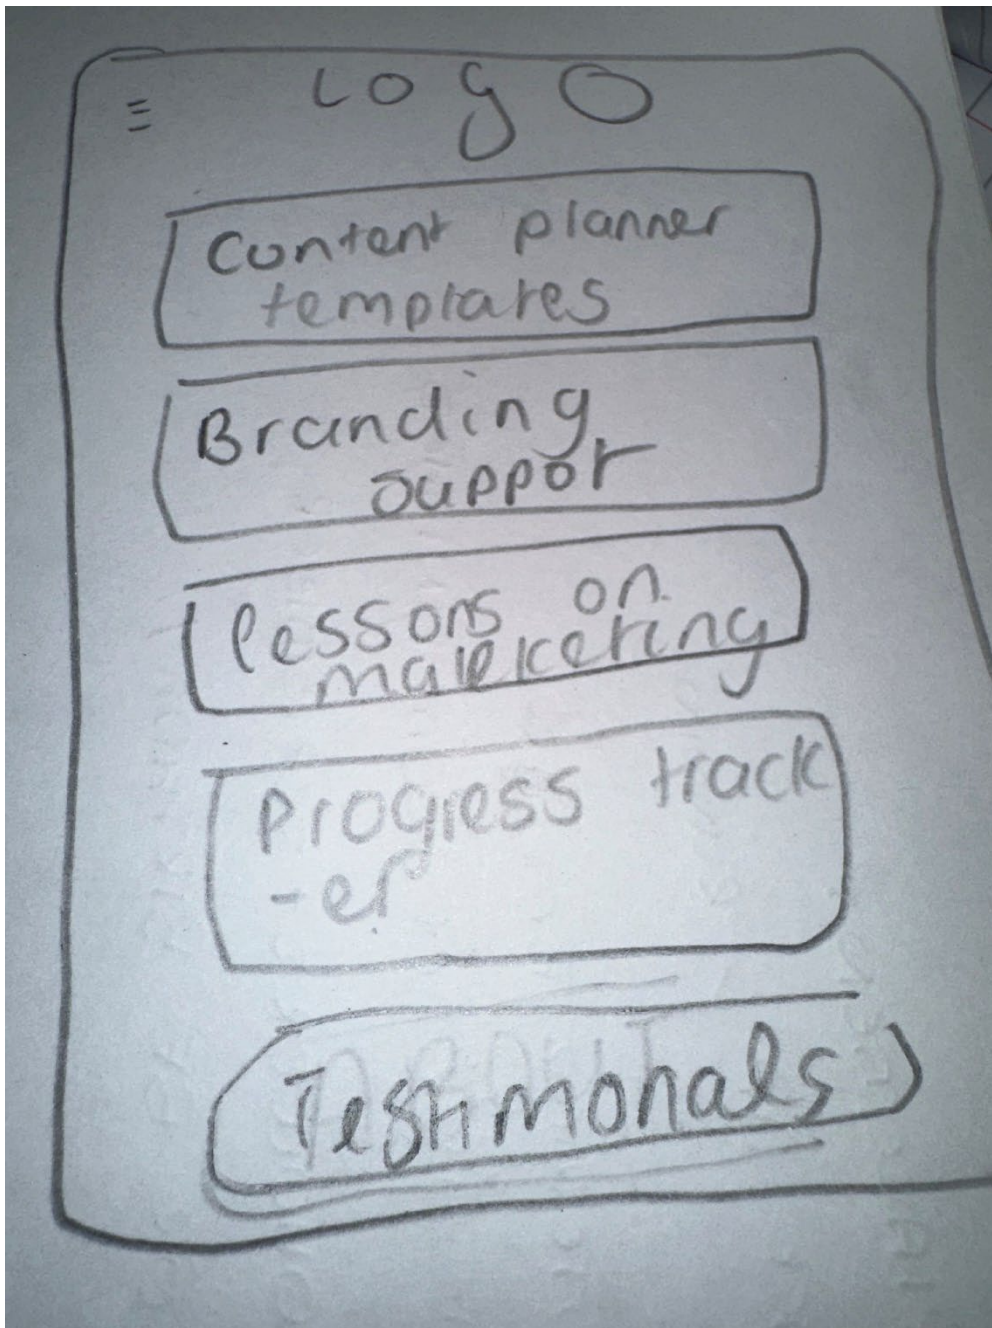 Logo
Content planner
templates
Branding
support
lessons on
marketing
Progress track
-er
Testimonals